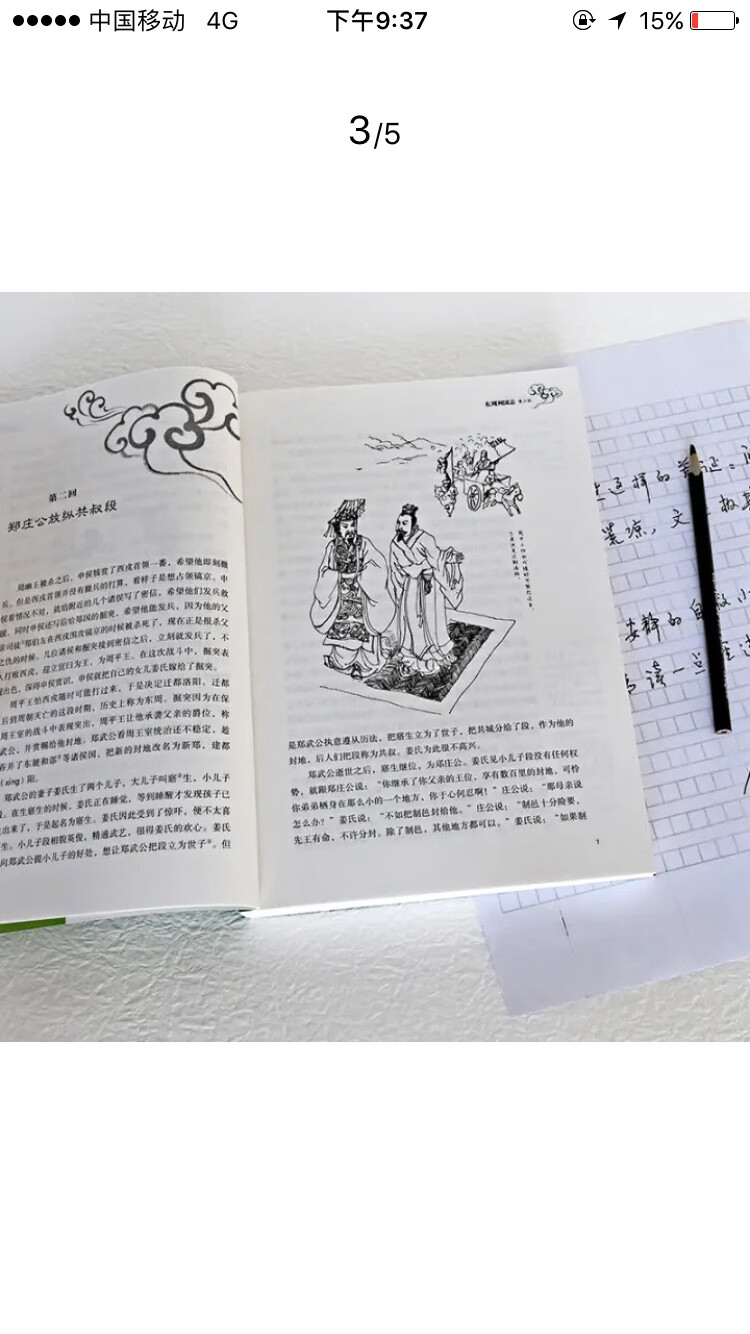 中国移动 4G 下午9:37 15%
3/5
第二回
郑庄公放纵共叔段
周幽王被杀之后，申侯犒赏了西戎首领一番，希望他即刻撤
兵。但是西戎首领并没有撤兵的打算，看样子是想占领镐京。申
侯看情况不对，就给附近的几个诸侯写了密信，希望他们发兵救
援。同时申侯还写信给郑国的掘突，希望他能发兵，因为他的父
亲司徒郑伯友在西戎围攻镐京的时候被杀死了，现在正是报杀父
之仇的时候。几位诸侯和掘突接到密信之后，立刻就发兵了，不
人打败西戎，迎立宜臼为王，为周平王。在这次战斗中，掘突表
现出色，深得申侯赏识，申侯就把自己的女儿姜氏嫁给了掘突。
周平王怕西戎随时可能打过来，于是决定迁都洛阳。迁都
后到周朝灭亡的这段时期，历史上称为东周。掘突因为在保
周王室的战斗中表现突出，周平王让他承袭父亲的爵位，称
武公，并赏赐给他封地。郑武公看周王室统治还不稳定，趁
吞并了东虢和郐等诸侯国，把新的封地改名为新郑，建都
(xíng)阳。
郑武公的妻子姜氏生了两个儿子，大儿子叫寤生，小儿子
段。在生寤生的时候，姜氏正在睡觉，等到睡醒才发现孩子已
出来了，于是起名为寤生。姜氏因此受到了惊吓，便不太喜
生。小儿子段相貌英俊，精通武艺，很得姜氏的欢心。姜氏
向郑武公提小儿子的好处，想让郑武公把段立为世子。但
东周列国志
是郑武公执意遵从历法，把寤生立为了世子，把共城分给了段，作为他的
封地，后人们把段称为共叔。姜氏为此很不高兴。
郑武公逝世之后，寤生继位，为郑庄公。姜氏见小儿子段没有任何权
势，就跟郑庄公说：“你继承了你父亲的王位，享有数百里的封地，可怜
你弟弟栖身在那么小的一个地方，你于心何忍啊！”庄公说：“那母亲说
怎么办？”姜氏说：“不如把制邑封给他。”庄公说：“制邑十分险要，
先王有命，不许分封。除了制邑，其他地方都可以。”姜氏说：“如果制
7
这样的
文
安静的自
读一